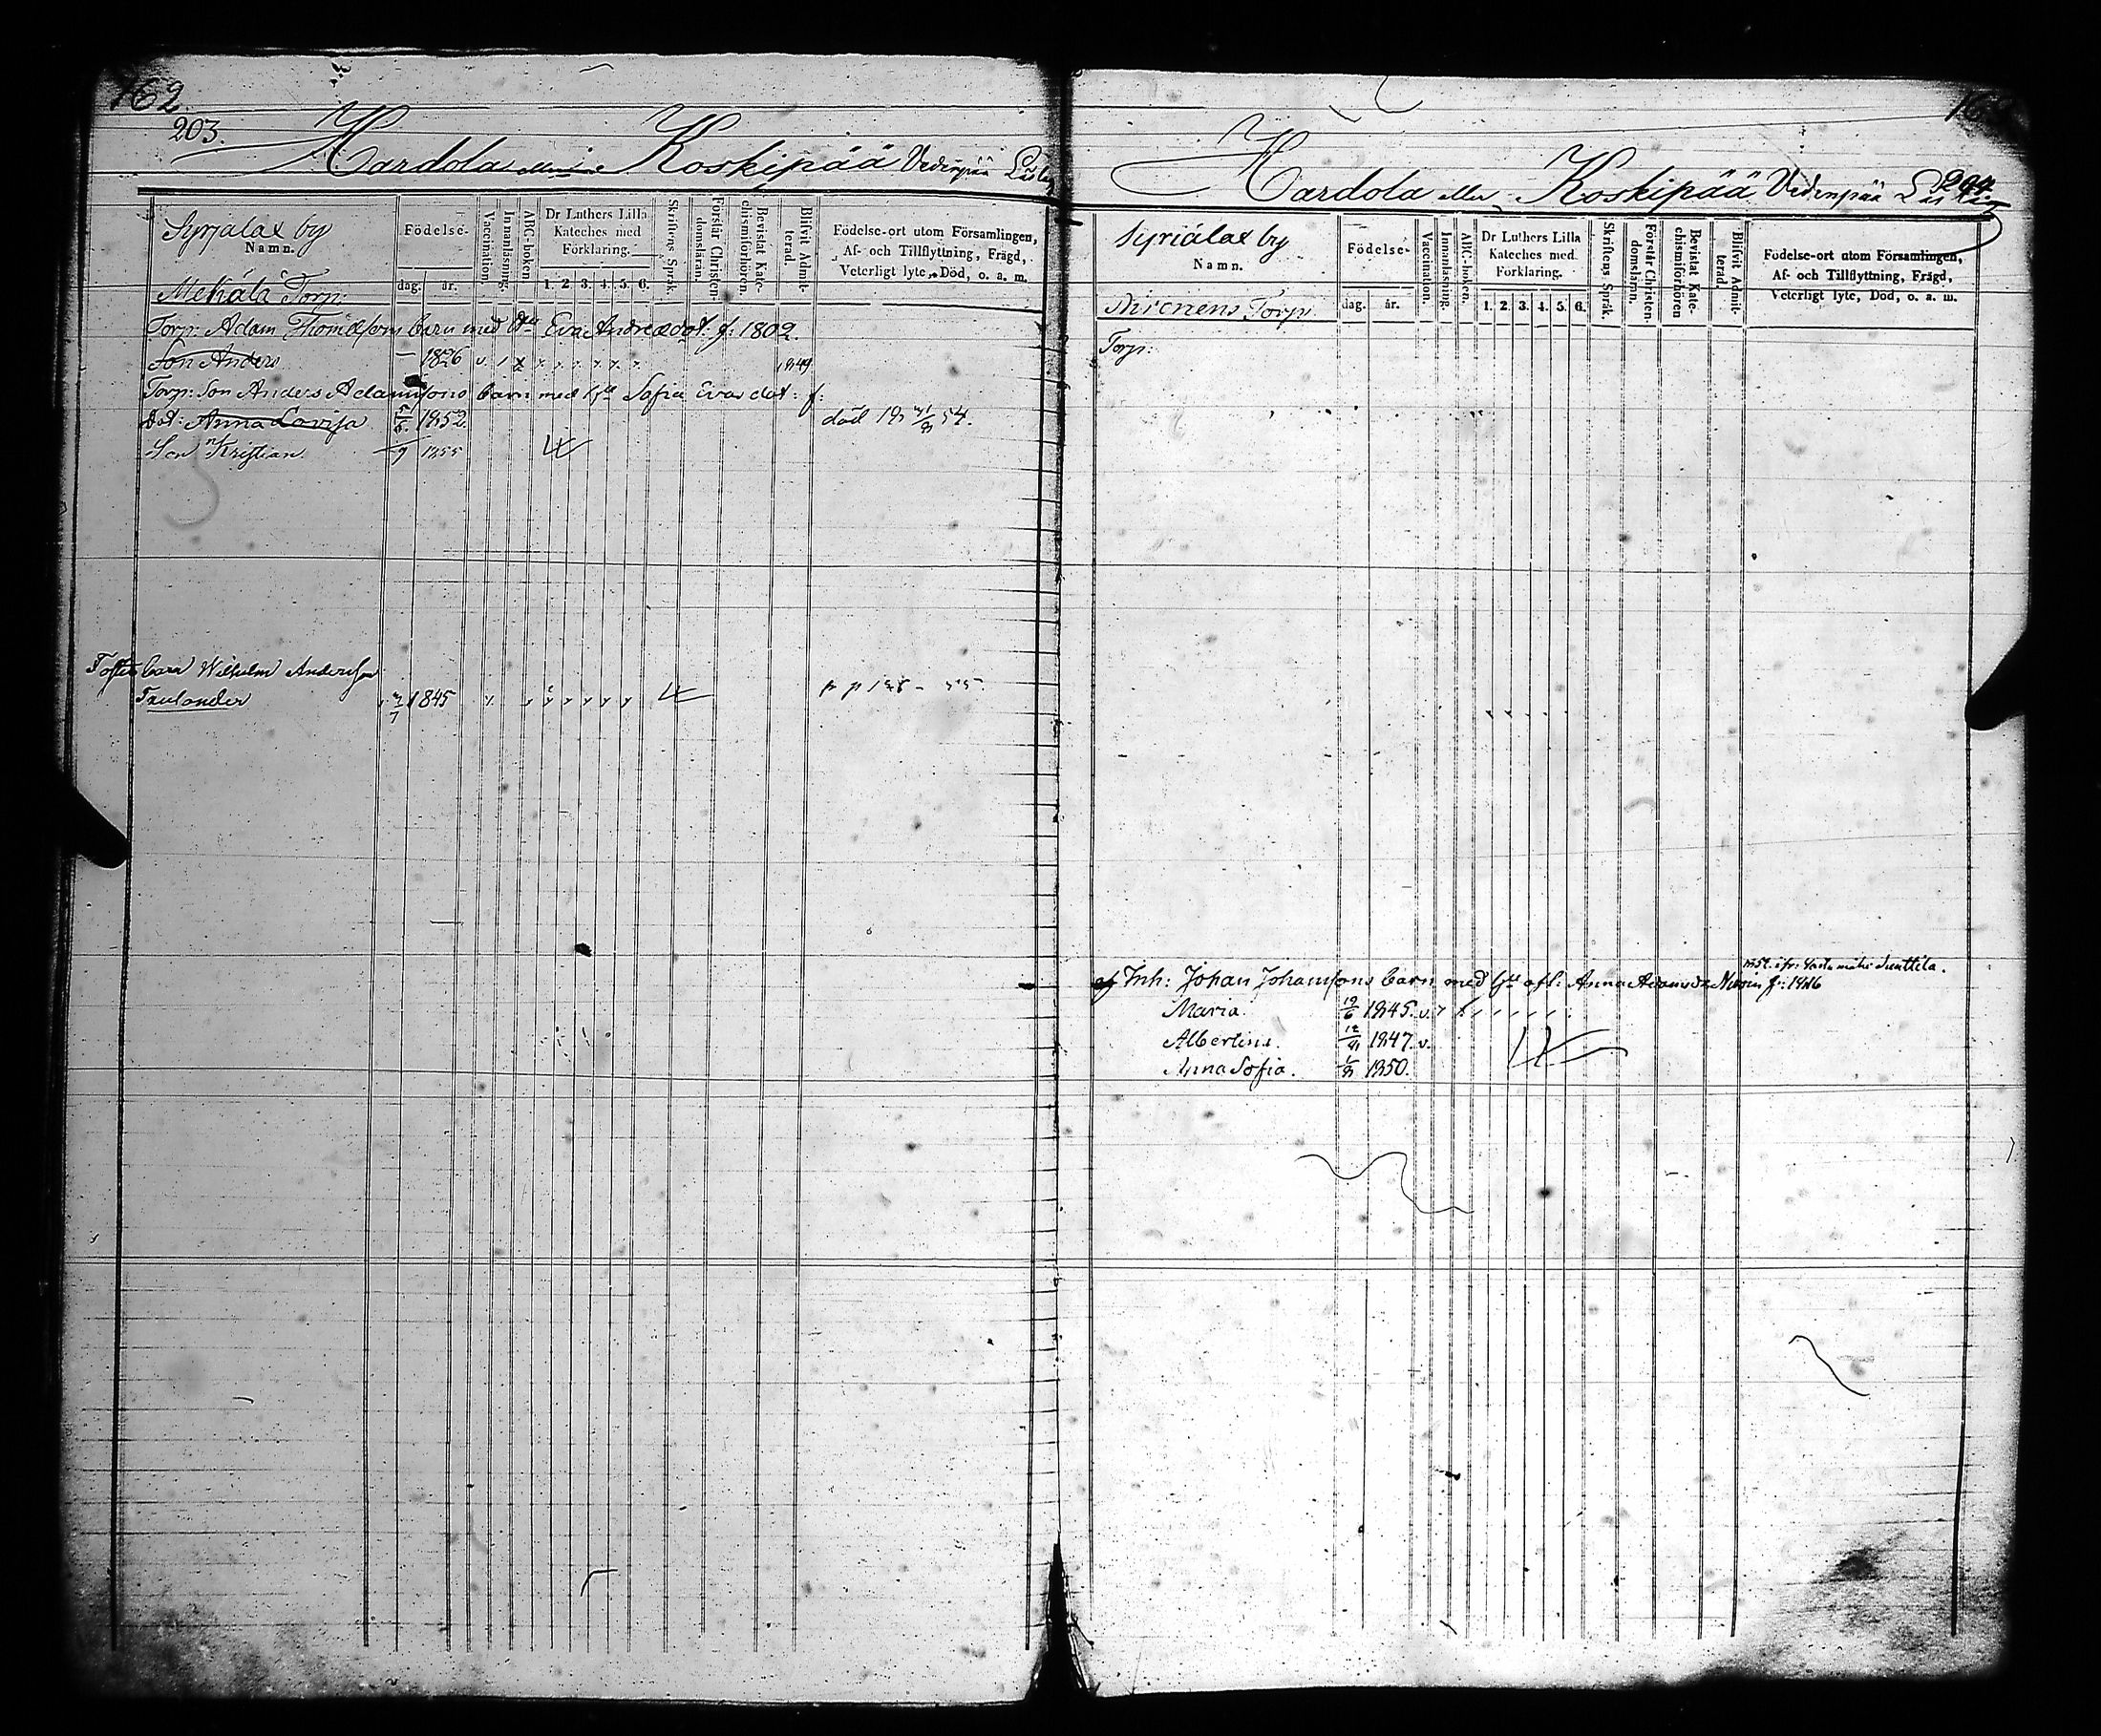 162.
203.
Hardola eller Koskipää Vedenpää Läslag
Syrjälax by
Namn.
Födelse-
dag. år.
Vaccination.
Innanläsning.
ABC-boken.
Dr Luthers Lilla
Kateches med
Förklaring.
1. 2. 3. 4. 5. 6.
Skriftens Språk.
Förstår Christen-
domsläran.
Bevistat Kate-
chismiförhören.
Blifvit Admit-
terad.
Födelse-ort utom Församlingen,
Af- och Tillflyttning, Frägd,
Veterligt lyte, Död, o. a. m.
Mekälä Torp:
Torp: Adam Thomæsons barn med Eva Andreædot: f: 1802.
Son Anders — 1826 v. 1849
Torp: Son Anders Adamssons barn med Sofia Evas dot: f:
Dot: Anna Lovisa 1852. död 54.
Son Kristian 1855
Foster barn Wilhelm Andersson
Taulander 1845
163
204
Hardola eller Koskipää Vedenpää
Syrjälax by
Namn.
Födelse-
dag. år.
Vaccination.
Innanläsning.
ABC-boken.
Dr Luthers Lilla
Kateches med.
Förklaring.
1. 2. 3. 4. 5. 6.
Skriftens Språk.
Förstår Christen-
domslärn.
Bevistat Kate-
chismiförhören
Blifvit Admit-
terad.
Födelse-ort utom Församlingen,
Af- och Tillflyttning, Frägd,
Veterligt lyte, Död, o. a. m.
Torp
Torp:
Inh: Johan Johanssons barn med afl: Anna Adamsd:
Maria. 19/6 1845. v.
Albertina. 1847. v.
Anna Sofia. 1850.